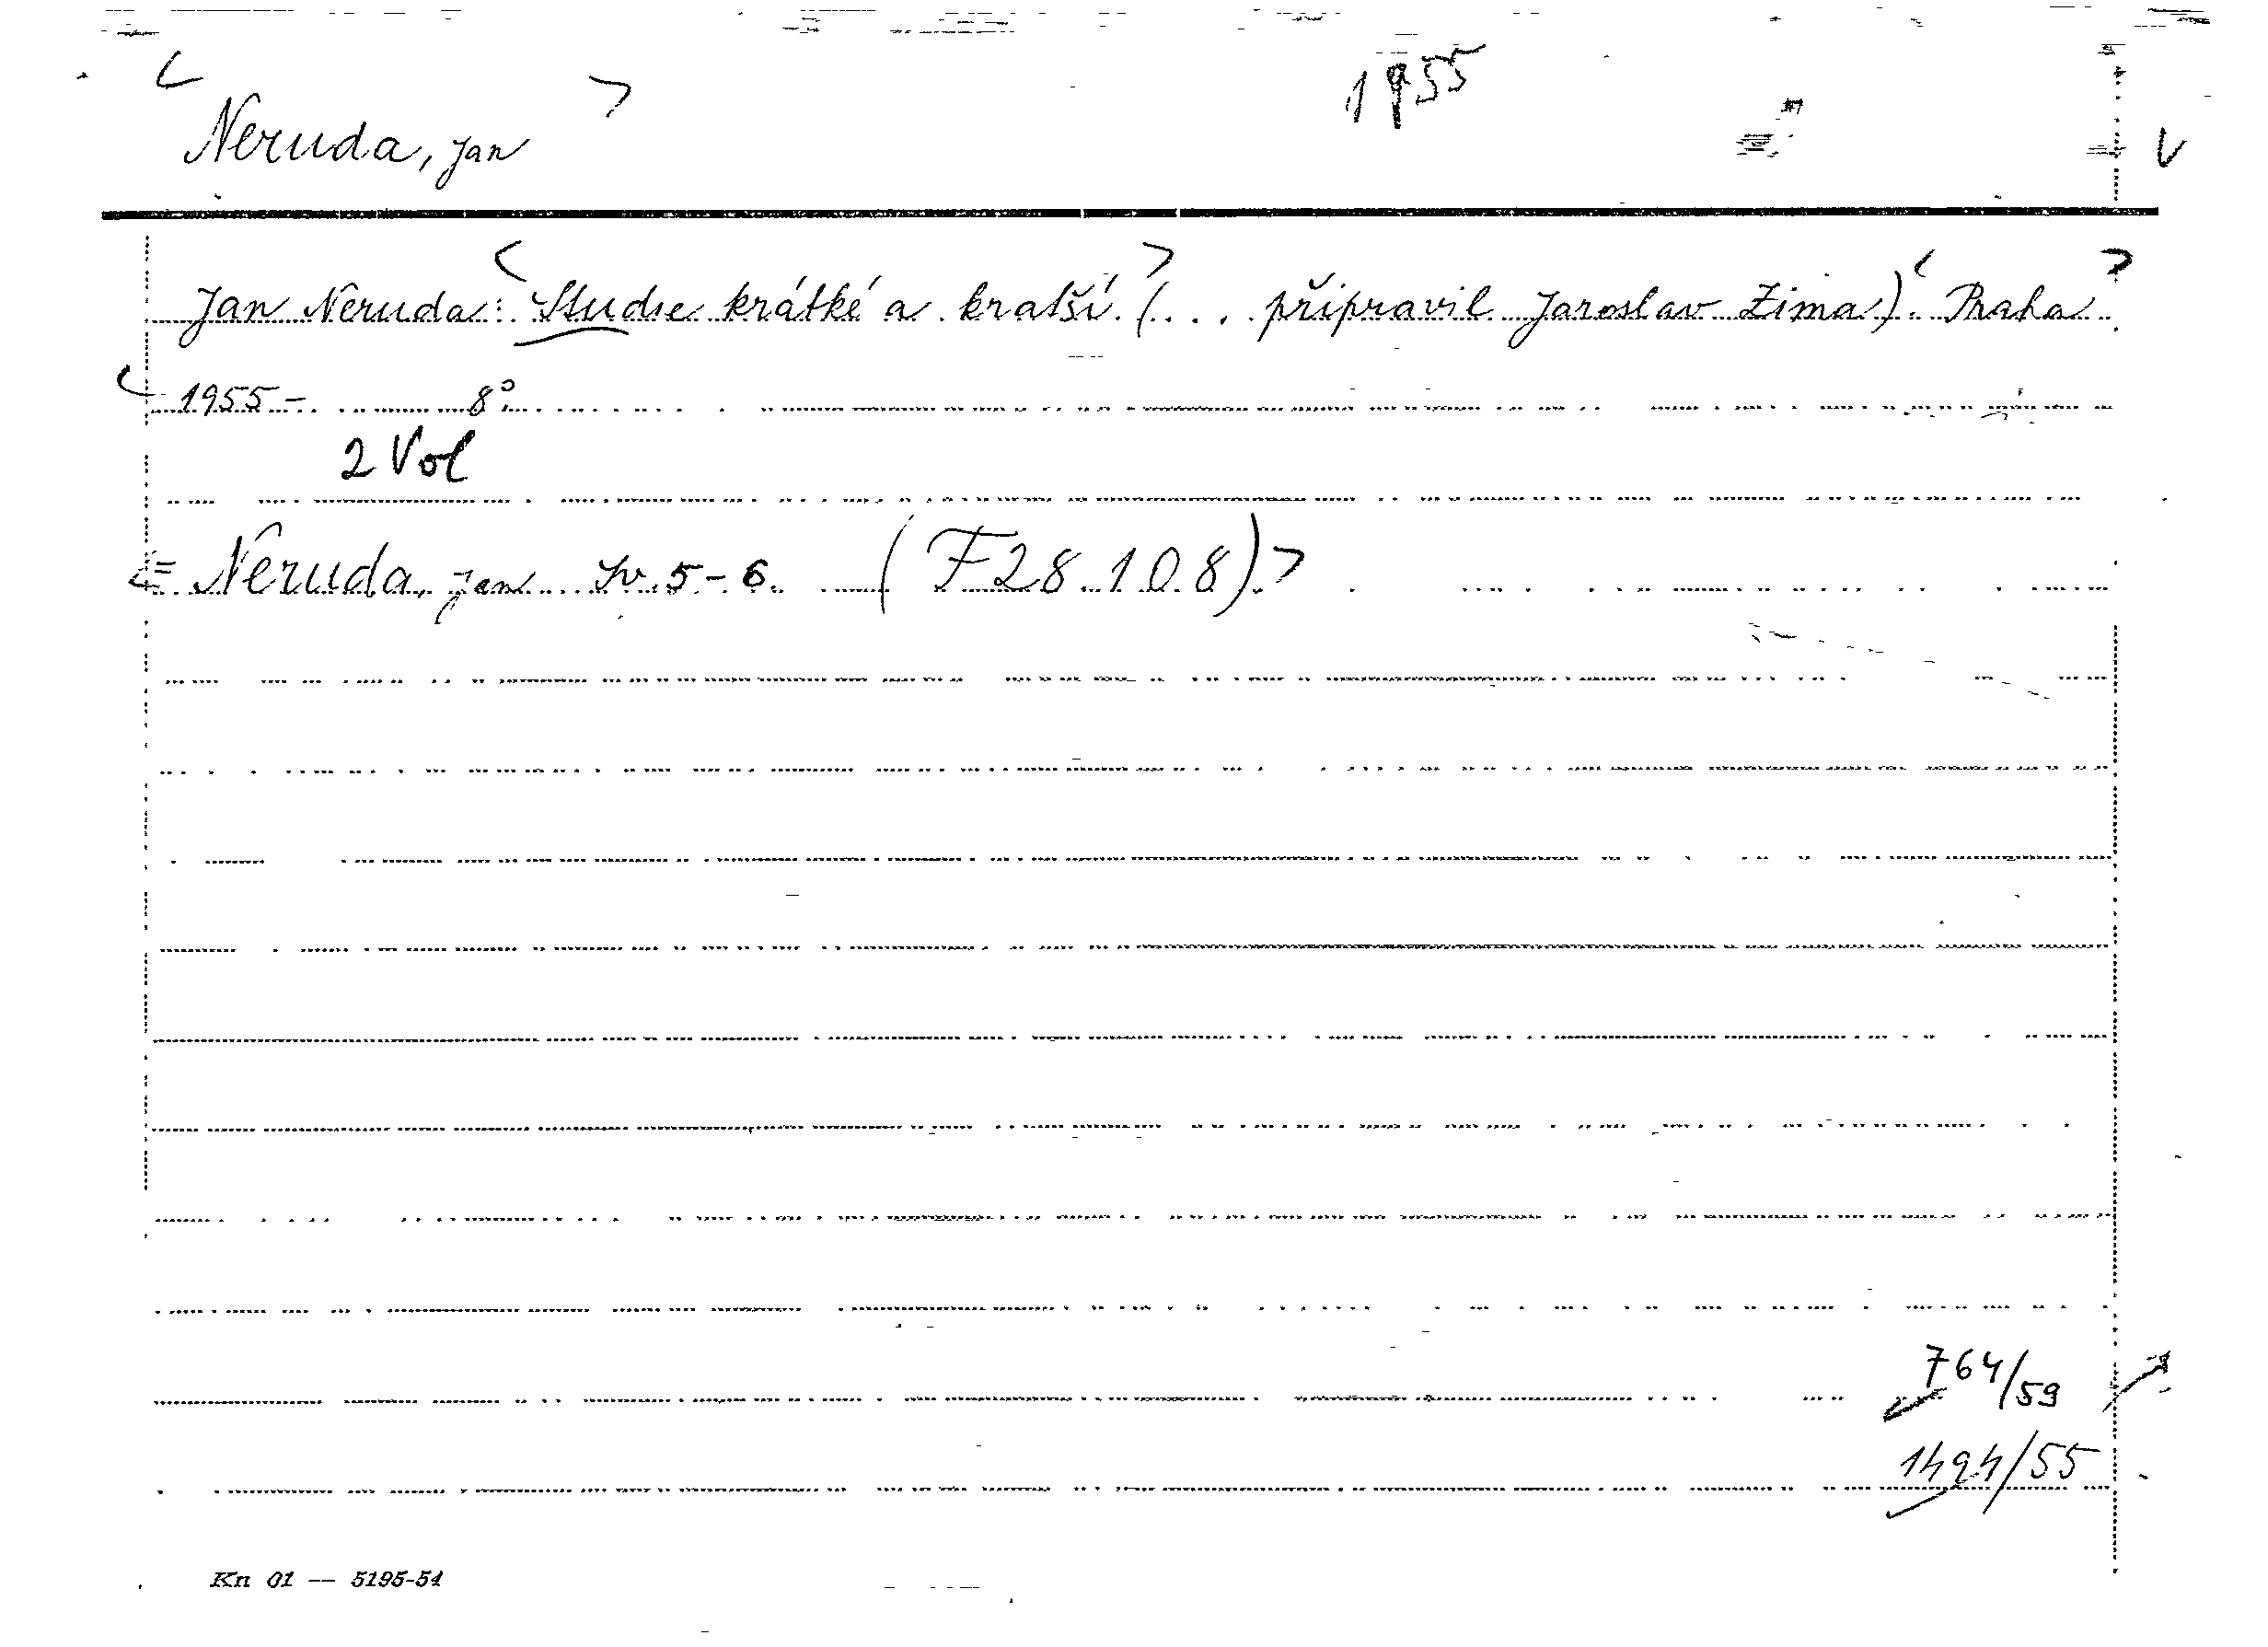 < Neruda, Jan > 1955 V
Jan Neruda: <Studie krátké a kratší> (... připravil Jaroslav Zima). <Praha>
<1955- 8°.
2 Vol
<= Neruda, Jan Sv. 5-6. (F 28.108)>
764/59
1494/55
Kn 01 — 5195-54